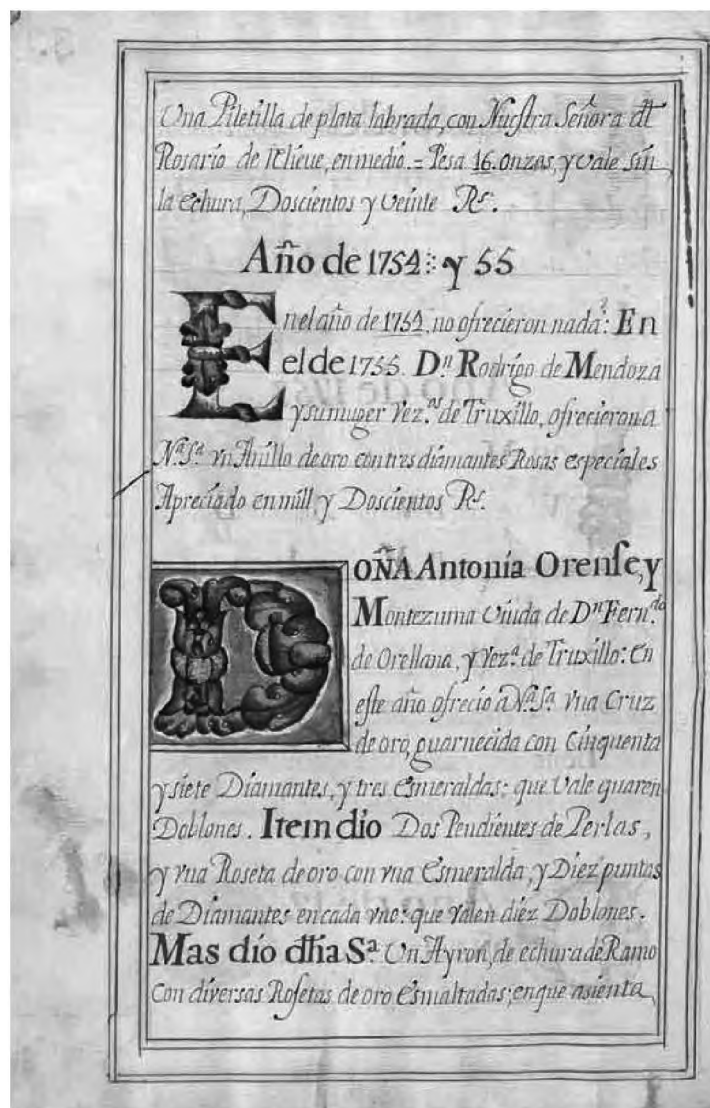 Una Piletilla de plata labrada, con Nuestra Señora dl
Rosario de Relieve, en medio. = Pesa 16. onzas, y vale sin
la echura, Doscientos y Veinte Rs.
Año de 1754 y 55
En el año de 1754 no ofrecieron nada: En
el de 1755. Dn Rodrigo de Mendoza
y su muger Vezos de Truxillo, ofrecieron a
Na. Sa. vn Anillo de oro con tres diamantes Rosas especiales
Apreciado en mill y Doscientos Rs.
DOÑA Antonia Orense, y
Montezuma Viuda de Dn Fern.do
de Orellana, y Veza de Truxillo: En
este año ofrecio a Na. Sa. vna Cruz
de oro, guarnecida con Cinquenta
y siete Diamantes, y tres Esmeraldas: que Vale quaren
Doblones. Item dio Dos Pendientes de Perlas,
y vna Roseta de oro con vna Esmeralda, y Diez puntas
de Diamantes en cada vno: que Valen diez Doblones.
Mas dio dha Sa. Un Ayron, de echura de Ramo
con diversas Rosetas de oro Esmaltadas; en que asienta